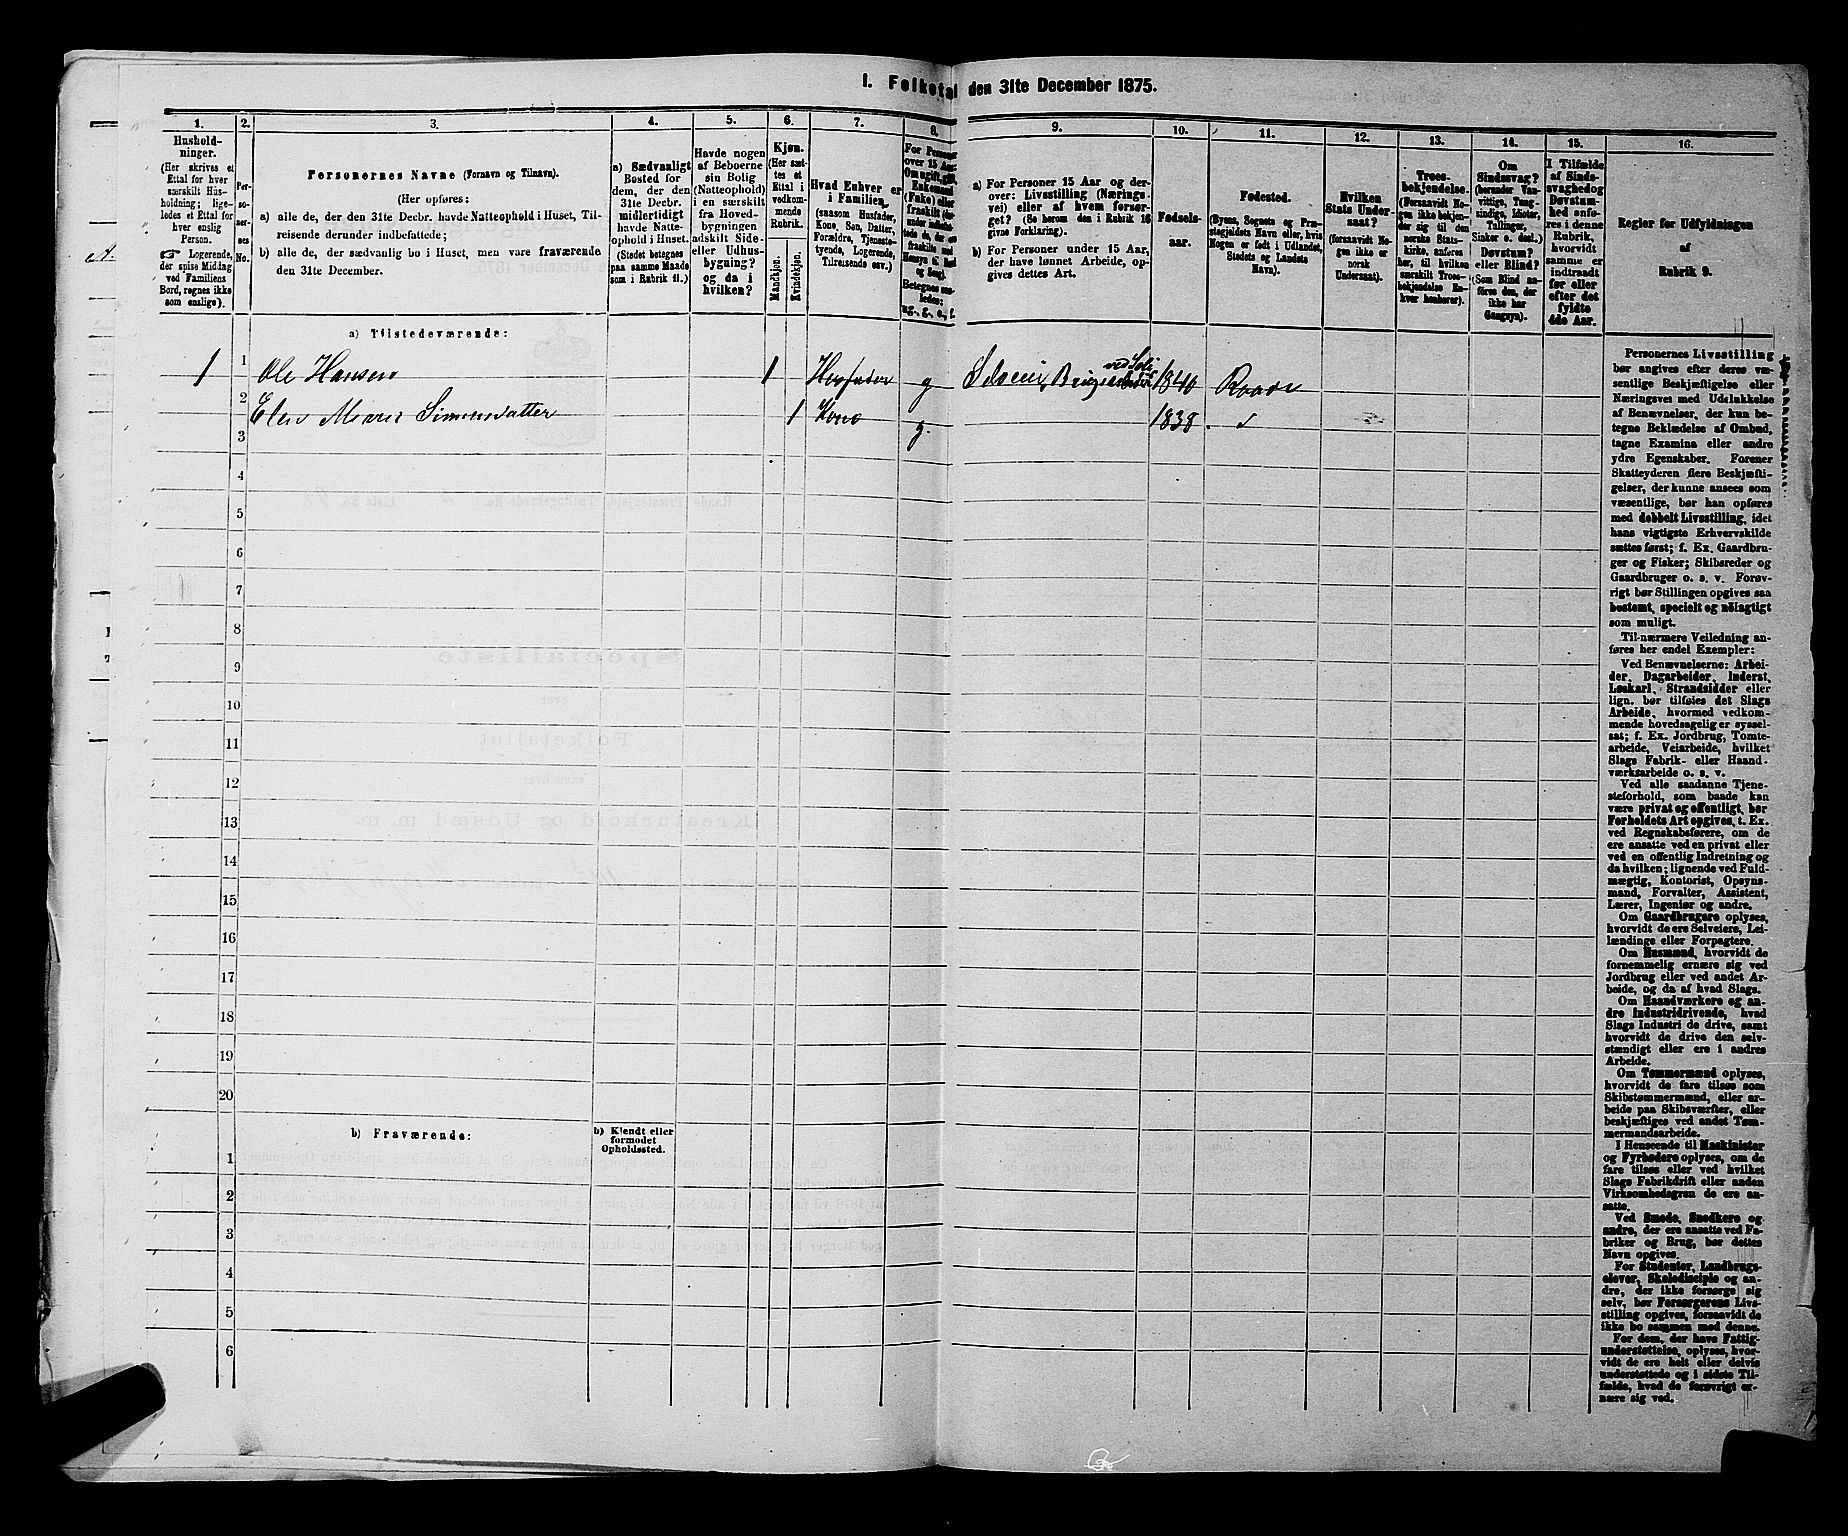 1. Folketal den 31te December 1875.
1.
Hushold-
ninger.
(Her skrives et
Ettal for hver
særskilt Hus-
holdning; lige-
ledes et Ettal for
hver enslig
Person.
☞ Logerende,
der spise Middag
ved Familiens
Bord, regnes ikke
som enslige).
2.
Per-
so-
ner-
nes
No.
3.
Personernes Navne (Fornavn og Tilnavn).
(Her opføres:
a) alle de, der den 31te Decbr. havde Natteophold i Huset, Til-
reisende derunder indbefattede;
b) alle de, der sædvanlig bo i Huset, men vare fraværende
den 31te December.
4.
a) Sædvanligt
Bosted for
dem, der den
31te Decbr.
midlertidigt
havde Natte-
ophold i Huset.
(Stedet betegnes
paa samme Maade
som i Rubrik 11.)
5.
Havde nogen
af Beboerne
sin Bolig
(Natteophold)
i en særskilt
fra Hoved-
bygningen
adskilt Side-
eller Udhus-
bygning?
og da i
hvilken?
6.
Kjøn.
(Her sæt-
tes et
Ettal i
vedkom-
mende
Rubrik.
Mandkjøn.
Kvindekjøn.
7.
Hvad Enhver er
i Familien
(saasom Husfader,
Kone, Søn, Datter,
Forældre, Tjeneste-
tyende, Logerende,
Tilreisende osv.)
8.
For Personer
over 15 Aar:
Om ugift, gift,
Enkemand
(Enke) eller
fraskilt
Betegnes saa-
ledes:
ug., g., e., f.
9.
a) For Personer 15 Aar og der-
over: Livsstilling (Nærings-
vei) eller af hvem forsør-
get? (Se herom den i Rubrik 16
givne Forklaring).
b) For Personer under 15 Aar,
der have lønnet Arbeide, op-
gives dettes Art.
10.
Fødsels-
aar.
11.
Fødested.
(Byens, Sognets og Præ-
stegjeldets Navn eller, hvis
Nogen er født i Udlandet,
Stedets og Landets
Navn).
12.
Hvilken
Stats Under-
saat?
(forsaavidt No-
gen ikke er
norsk
Undersaat).
13.
Troes-
bekjendelse.
(Forsaavidt No-
gen ikke bekjen-
der sig til den
norske Stats-
kirke, anføres
her, til hvilken
særskilt Troes-
bekjendelse En-
hver henhører).
14.
Om
Sindssvag?
(herunder Van-
vittige, Tung-
sindige, Idioter,
Tullinger,
Sinker o. desl.)
Døvstum?
eller Blind?
(Som Blind an-
føres den, der
ikke har
Gangsyn).
15.
I Tilfælde
af Sinds-
svaghed og
Døvstum-
hed anfø-
res i denne
Rubrik,
hvorvidt
samme er
indtraadt
før eller
efter det
fyldte
4de Aar.
16.
Regler for Udfyldningen
af
Rubrik 9.
a) Tilstedeværende:
1 1 Ole Hansen 1 Husfader g Selveier Brugsarbeider 1840 Raade
2 Elen Marie Simensdatter 1 Kone g. 1838
3
4
5
6
7
8
9
10
11
12
13
14
15
16
17
18
19
20
b) Fraværende:
b) Kjendt eller
formodet
Opholdssted.
1
2
3
4
5
6
Personernes Livsstilling
bør angives efter deres væ-
sentlige Beskjæftigelse eller
Næringsvei med Udelukkelse
af Benævnelser, der kun be-
tegne Beklædelse af Ombud,
tagne Examina eller andre
ydre Egenskaber. Forener
Skatteyderen flere Beskjæfti-
gelser, der kunne ansees som
væsentlige, bør han opføres
med dobbelt Livsstilling, idet
hans vigtigste Erhvervskilde
sættes først; f. Ex. Gaardbru-
ger og Fisker; Skibsreder og
Gaardbruger o. s. v. Forøv-
rigt bør Stillingen opgives saa
bestemt, specielt og nøiagtigt
som muligt.
Til nærmere Veiledning an-
føres her endel Exempler:
Ved Benævnelserne: Arbei-
der, Dagarbeider, Inderst,
Løskarl, Strandsidder eller
lign. bør tilføies det Slags
Arbeide, hvormed vedkom-
mende hovedsagelig er syssel-
sat; f. Ex. Jordbrug, Tomte-
arbeide, Veiarbeide, hvilket
Slags Fabrik- eller Haand-
værksarbeide o. s. v.
Ved alle saadanne Tjene-
steforhold, som baade kan
være privat og offentligt, bør
Forholdets Art opgives, t. Ex.
ved Regnskabsførere, om de
ere ansatte ved en privat eller
ved en offentlig Indretning og
da hvilken; lignende ved Fuld-
mægtig, Kontorist, Opsyns-
mand, Forvalter, Assistent,
Lærer, Ingeniør og andre.
Om Gaardbrugere oplyses,
hvorvidt de ere Selveiere, Lei-
lændinge eller Forpagtere.
Om Husmænd, hvorvidt de
fornemmelig ernære sig ved
Jordbrug eller ved andet Ar-
beide, og da af hvad Slags.
Om Haandværkere og an-
dre Industridrivende, hvad
Slags Industri de drive, samt
hvorvidt de drive den selv-
stændigt eller ere i andres
Arbeide.
Om Tømmermænd oplyses,
hvorvidt de fare tilsøs som
Skibstømmermænd, eller ar-
beide paa Skibsværfter, eller
beskjæftiges ved andet Tøm-
mermandsarbeide.
I Henseende til Maskinister
og Fyrbødere oplyses, om de
fare tilsøs eller ved hvilket
Slags Fabrikdrift eller anden
Virksomhedsgren de ere an-
satte.
Ved Smede, Snedkere og
andre, der ere ansatte ved Fa-
briker og Brug, bør dettes
Navn opgives.
For Studenter, Landbrugs-
elever, Skoledisciple og an-
dre, der ikke forsørge sig
selv, bør Forsørgerens Livs-
stilling opgives, forsaavidt de
ikke bo sammen med denne.
For dem, der have Fattig-
understøttelse, oplyses, hvor-
vidt de ere helt eller delvis
understøttede og i sidste Til-
fælde, hvad de forøvrigt er-
nære sig ved.